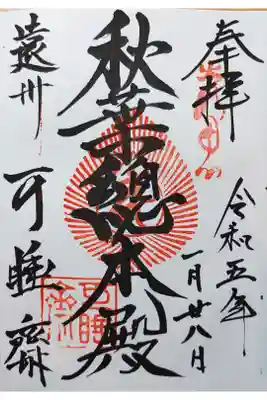 奉拝
令和五年
一月廿八日
秋葉總本殿
遠州 可睡齋